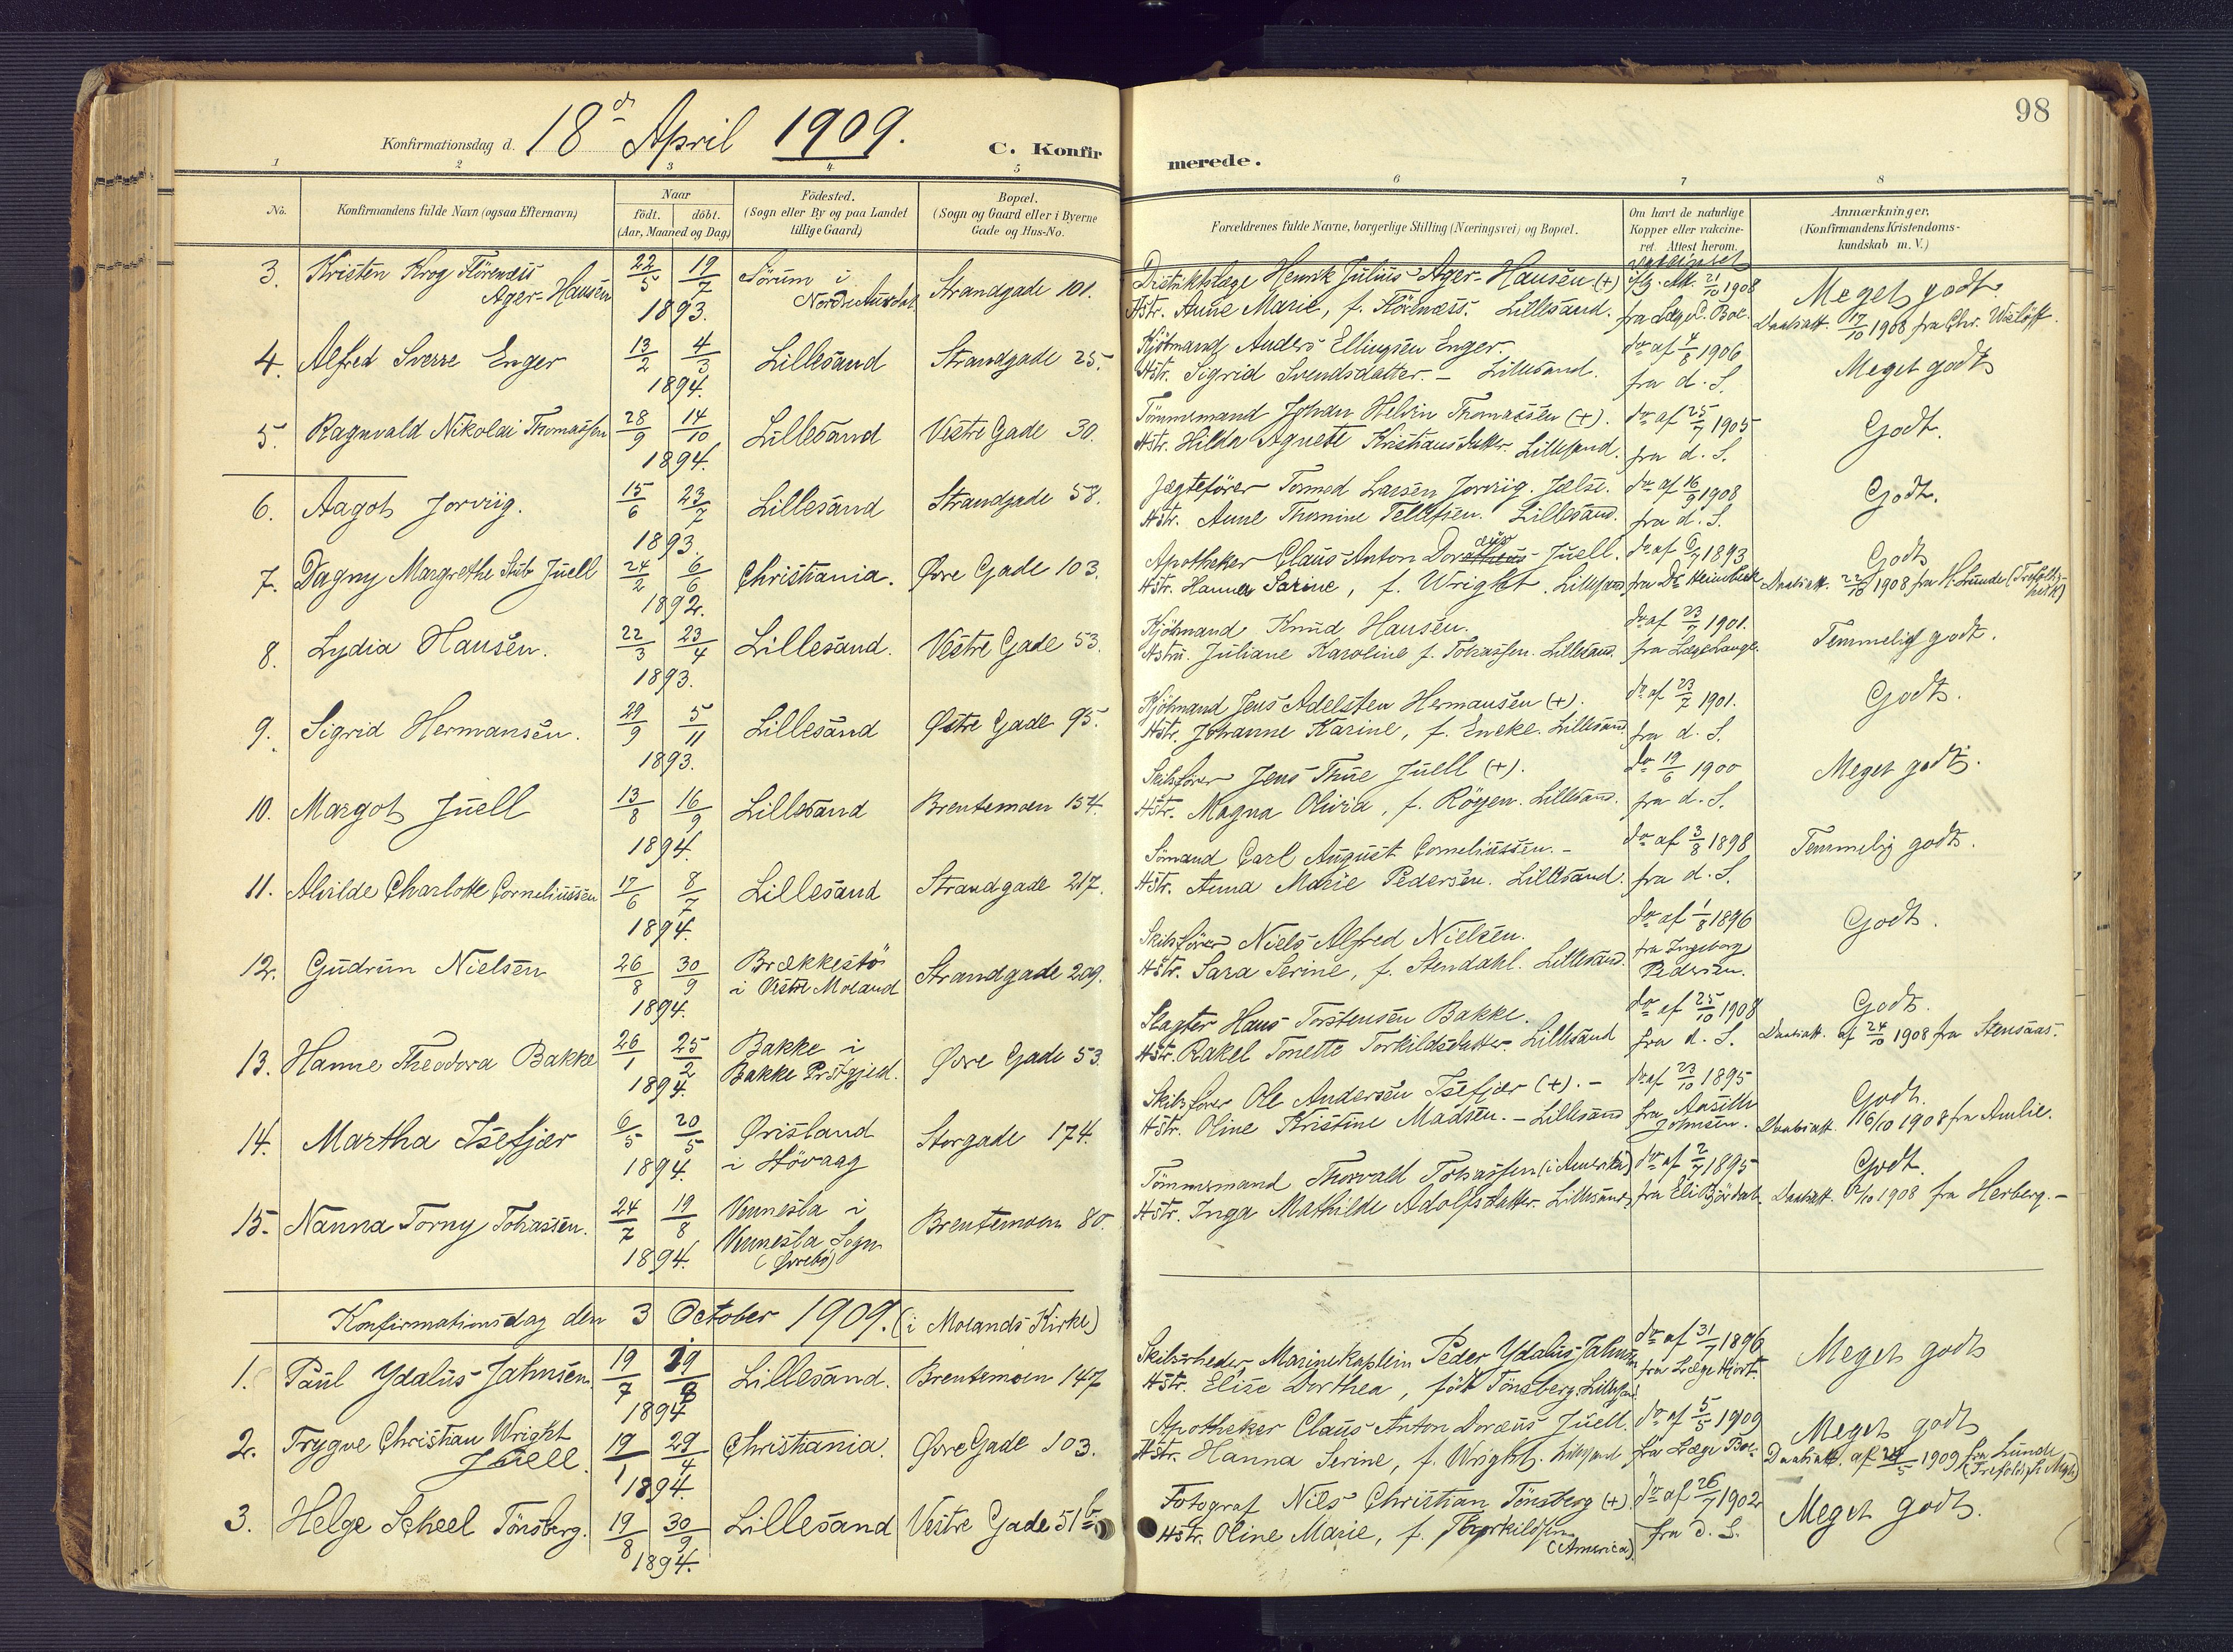 98
Konfirmationsdag d. 18d April 1909. C. Konfirmerede.
1 2 3 4 5 6 7 8
No.
Konfirmandens fulde Navn (ogsaa Efternavn)
Naar
födt. döbt.
(Aar, Maaned og Dag)
Födested.
(Sogn eller By og paa Landet
tillige Gaard)
Bopæl.
(Sogn og Gaard eller i Byerne
Gade og Hus-No.
Forældrenes fulde Navne, borgerlige Stilling (Næringsvei) og Bopæl.
Om havt de naturlige
Kopper eller vakcine-
ret. Attest herom.
Anmærkninger.
(Konfirmandens Kristendoms-
kundskab m. V.)
3. Kristen Krog Flörenæss
Ager-Hansen
22/5 19/7
1893.
Sörum i
Nordre Aurdal
Strandgade 101.
Distriktslæge Henrik Julius Ager-Hansen (+)
Hstr. Anne Marie, f. Flörenæss. Lillesand.
vakcineret
iflg. Att. 21/10 1908
fra Læge Boe.
Meget godt.
Daabsatt. 17/10 1908 fra Chr.
4. Alfred Sverre Enger
13/2 4/3
1894.
Lillesand
Strandgade 25.
Kjöbmand Anders Ellingsen Enger.
Hstr. Sigrid Svendsdatter. - Lillesand.
do af 4/8 1906
fra d. S.
Meget godt
5. Ragnvald Nikolai Thomassen
28/9 14/10
1894.
Lillesand
Vestre Gade 30.
Tömmermand Johan Helvin Thomassen (+).
Hstr. Hilda Agnete Kristiansdatter. Lillesand.
do af 25/7 1905
fra d. S.
Godt.
6. Aagot Jorviig.
15/6 23/7
1893.
Lillesand
Strandgade 58.
Jægtefører Tormod Larsen Jorviig. Jælse.
Hstr. Anne Thomine Tellefsen. Lillesand.
do af 16/9 1908
fra d. S.
Godt.
7. Dagny Margrethe Stub Juell
24/2 6/6
1892.
Christiania.
Øvre Gade 103.
Apotheker Claus Anton Doræus Juell.
Hstr. Hanna Sarine, f. Wright. Lillesand
do af 6/7 1893
fra Dr. Heimbeck
Godt
Daabsatt. 22/10 1908 fra H. Lunde (Trefoldig-
hetsk)
8. Lydia Hansen.
22/3 23/4
1893.
Lillesand.
Vestre Gade 53.
Kjöbmand Knud Hansen.
Hstru. Juliane Karoline f. Tobiassen. Lillesand.
do af 23/7 1901.
fra Læge Lange.
Temmelig godt.
9. Sigrid Hermansen.
29/9 5/11
1893.
Lillesand
Østre Gade 95.
Kjöbmand Jens Adelsten Hermansen (+).
Hstr. Johanne Karine, f. Eneke. Lillesand
do af 23/7 1901.
fra d. S.
Godt.
10. Margot Juell
13/8 16/9
1894.
Lillesand
Brentemoen 154.
Skibsfører Jens Thue Juell (+).
Hstr. Magna Olivia, f. Röyen. Lillesand.
do 19/6 1900
fra d. S.
Meget godt.
11. Alvilde Charlotte Corneliussen
17/6 8/7
1894.
Lillesand
Strandgade 217.
Sömand Carl August Corneliussen. -
Hstr. Anna Marie Pedersen. Lillesand.
do af 3/8 1898
fra d. S.
Temmelig godt.
12. Gudrun Nielsen
26/8 30/9
1894.
Brækkestö
i Vestre Moland
Strandgade 209.
Skibsfører Niels Alfred Nielsen.
Hstr. Sara Serine, f. Stendahl. Lillesand.
do af 1/8 1896
fra Ingeborg
Pedersen.
Godt.
13. Hanne Theodora Bakke
26/1 25/2
1894.
Bakke i
Bakke Prstgjeld.
Øvre Gade 53.
Slagter Hans Torstensen Bakke.
Hstr. Rakel Tonette Torkildsdatter. Lillesand
do af 25/10 1908
fra d. S.
Godt.
Daabsatt. af 24/10 1908 fra Stensaas.
14. Martha Isefjær
6/5 20/5
1894.
Ørisland
i Hövaag
Storgade 174.
Skibsfører Ole Andersen Isefjær (+). -
Hstr. Oline Kristine Madsen. - Lillesand
do af 23/10 1895
fra Aasille
Johnsen.
Godt.
Daabsatt. 16/10 1908 fra Amlie.
15. Nanna Torny Tobiassen.
24/7 19/8
1894.
Vennesla i
Vennesla Sogn
(Øvrebö)
Brentemoen 80.
Tömmermand Thorvald Tobiassen (i Amerika)
Hstr. Inga Mathilde Adolfsdatter. Lillesand
do af 2/7 1895
fra Eli Björdal.
Godt.
Daabsatt. /10 1908 fra Herberg. -
Konfirmationsdag den 3 October 1909. (i Molands Kirke)
1. Paul Ydalus Jahnsen.
19/7 19/8
1894
Lillesand.
Brentemoen 147
Skibsrheder, Marinekaptein Peder Ydalus Jahnsen
Hstr. Elise Dorthea, född Tönsberg. Lillesand
do af 31/7 1896
fra Læge Hjort.
Meget godt
2. Trygve Christian Wright
Juell.
19/1 29/4
1894.
Christiania.
Øvre Gade 103.
Apotheker Claus Anton Doræus Juell.
Hstr. Hanna Serine, f. Wright. Lillesand
do af 5/5 1909
fra Læge Boe.
Meget godt
Daabsatt. af 24/5 1909 fra Lunde
3. Helge Scheel Tönsberg.
19/8 30/9
1894.
Lillesand
Vestre Gade 51b
Fotograf Nils Christian Tönsberg (+)
Hstr. Oline Marie, f. Thorkildsen
(America)
do af 26/7 1902
fra d. S.
Meget godt.